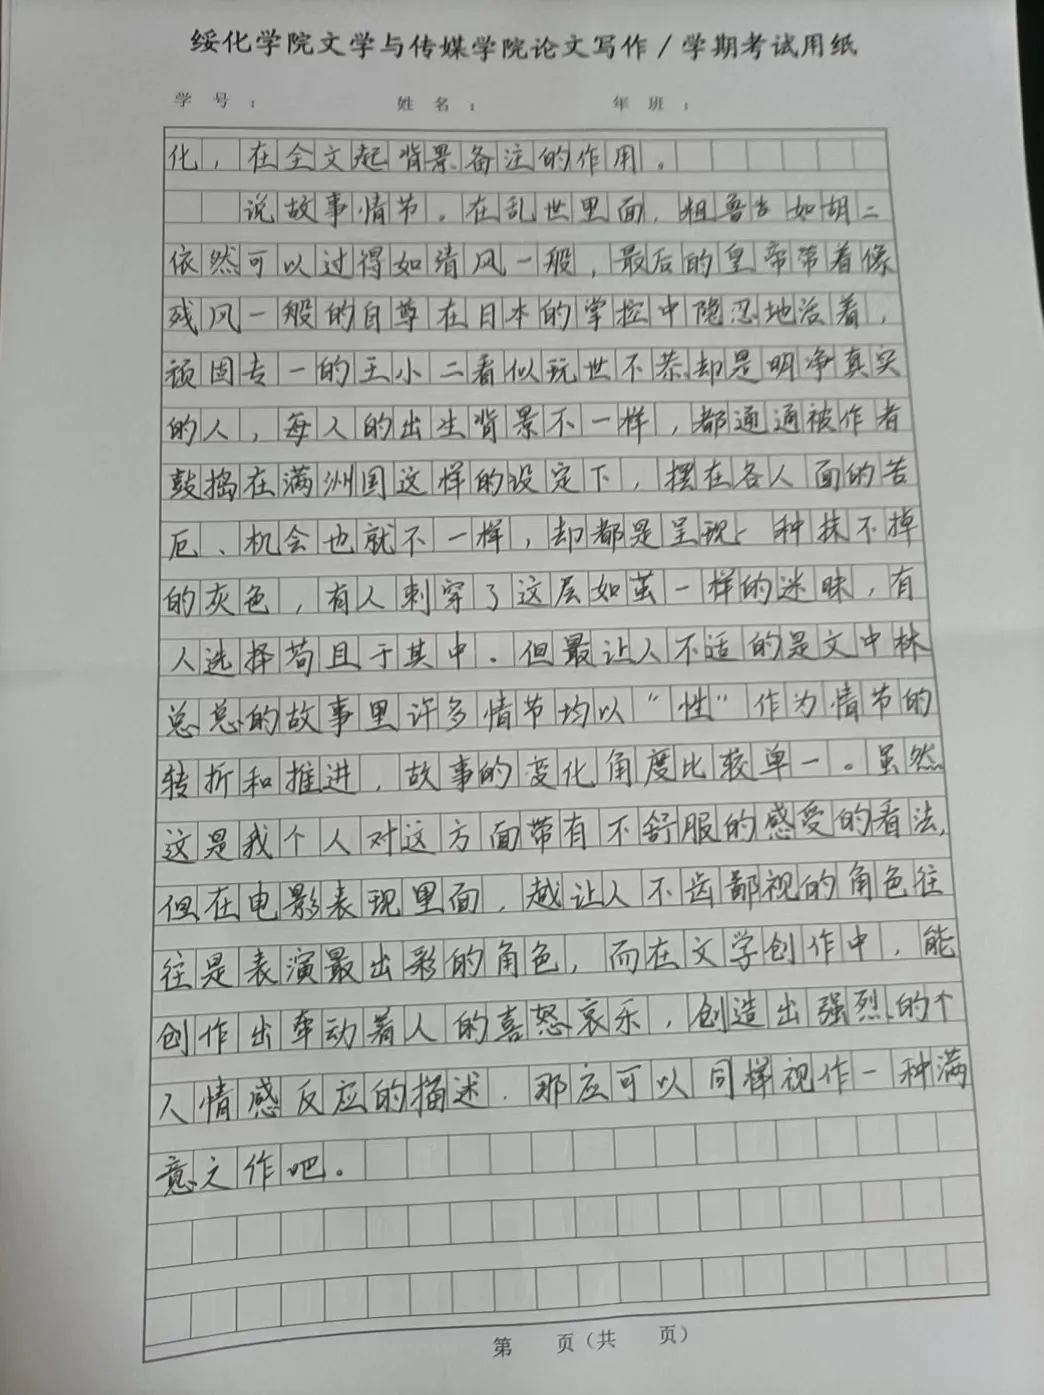 绥化学院文学与传媒学院论文写作/学期考试用纸
学号： 姓名： 年班：
化，在全文起背景备注的作用。
说故事情节。在乱世里面，粗鲁如胡二
依然可以过得如清风一般，最后的皇帝带着像
残风一般的自尊在日本的掌控中隐忍地活着，
顽固专一的王小二看似玩世不恭却是明净真实
的人，每人的出生背景不一样，都通通被作者
鼓捣在满洲国这样的设定下，摆在各人面的苦
厄、机会也就不一样，却都是呈现一种抹不掉
的灰色，有人刺穿了这层如茧一样的迷昧，有
人选择苟且于其中。但最让人不适的是文中林
总总的故事里许多情节均以“性”作为情节的
转折和推进，故事的变化角度比较单一。虽然
这是我个人对这方面带有不舒服的感受的看法，
但在电影表现里面，越让人不齿鄙视的角色往
往是表演最出彩的角色，而在文学创作中，能
创作出牵动着人的喜怒哀乐，创造出强烈的个
人情感反应的描述，那应可以同样视作一种满
意之作吧。
第 页（共 页）